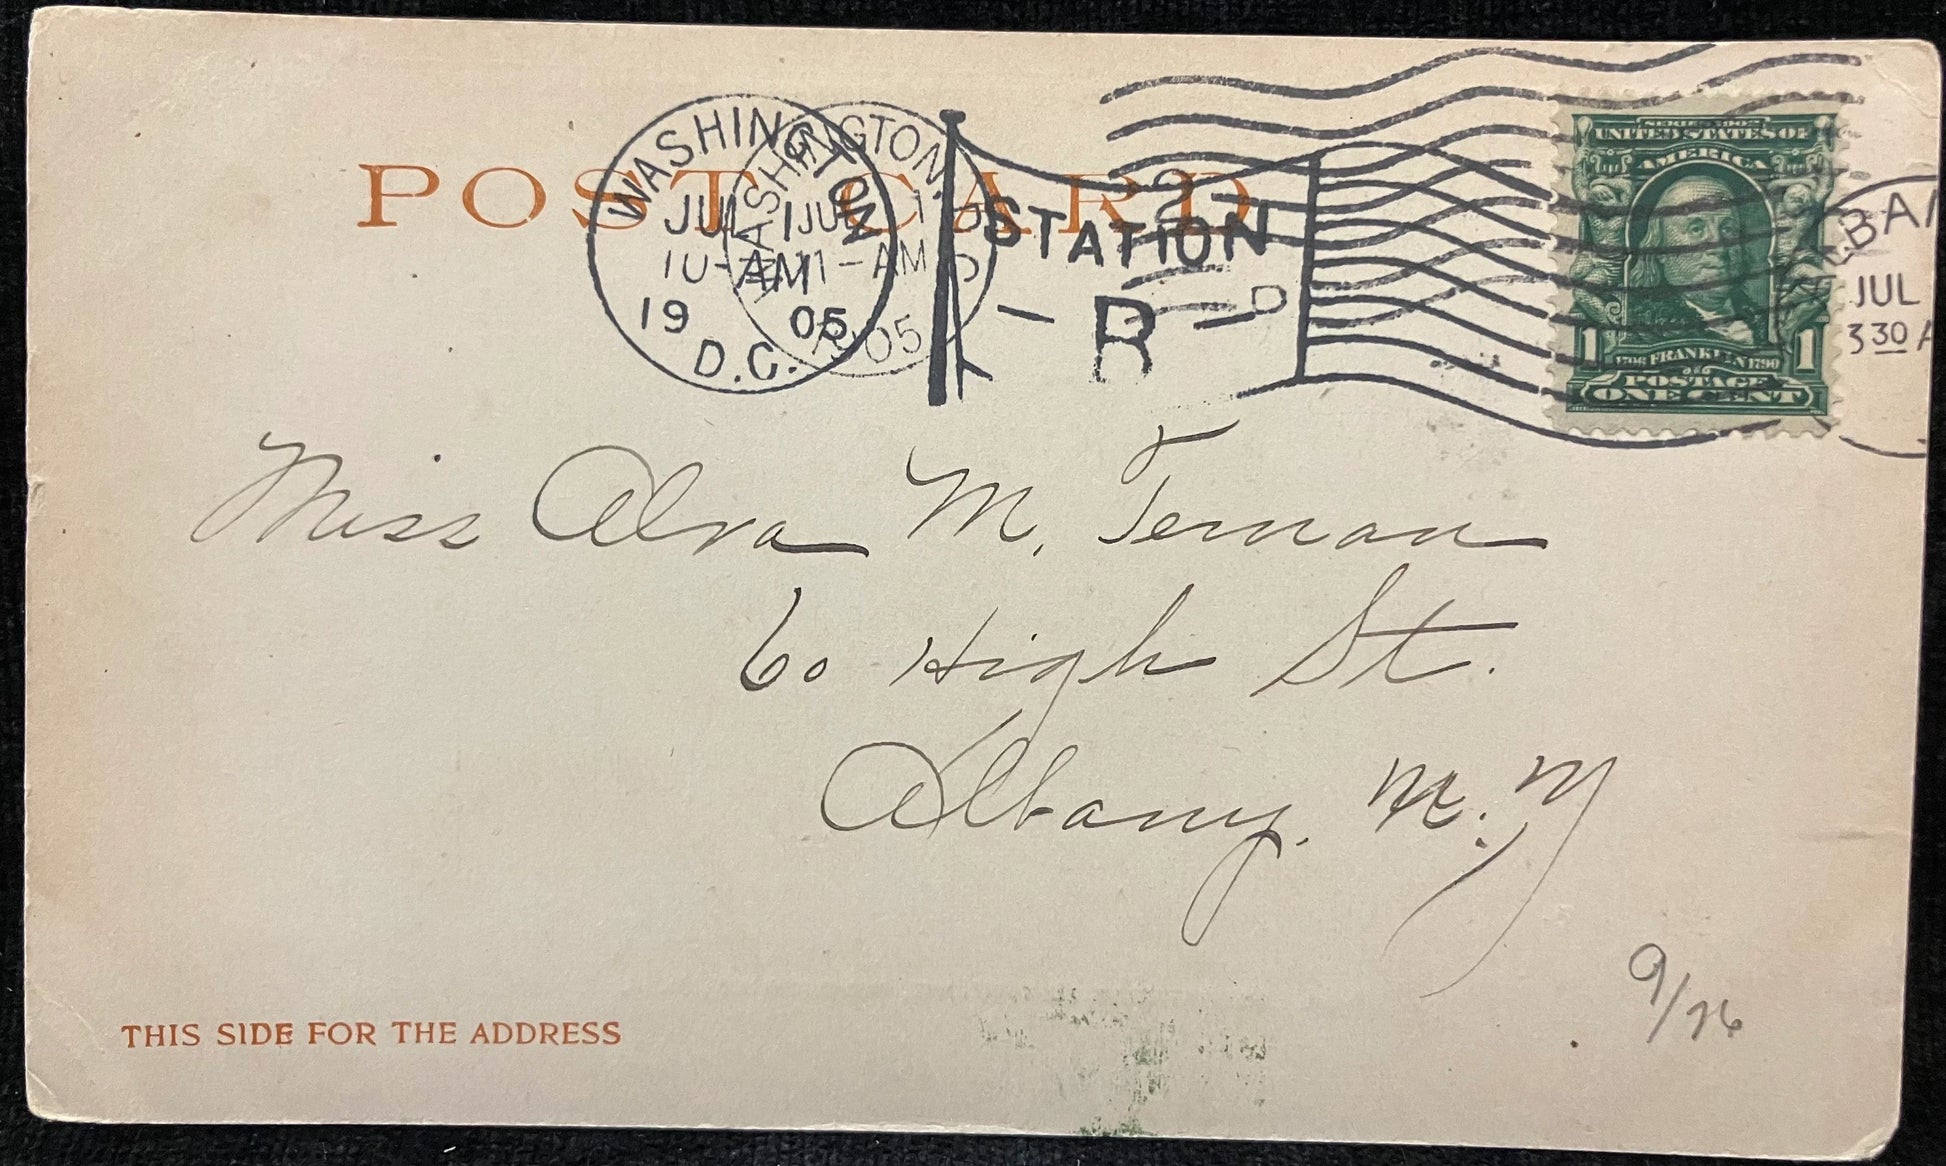 POST CARD
WASHINGTON
JUL 1
10-AM
19 05
D.C.
WASHINGTON,
JUL 1
11-AM
1905
D
STATION
- R -
D
SERIES 1902
UNITED STATES OF
AMERICA
1 1706 FRANKLIN 1790 1
POSTAGE
ONE CENT
JUL
3 30 A
Miss Alva M. Ternan
60 High St.
Albany. N.Y
9/26
THIS SIDE FOR THE ADDRESS